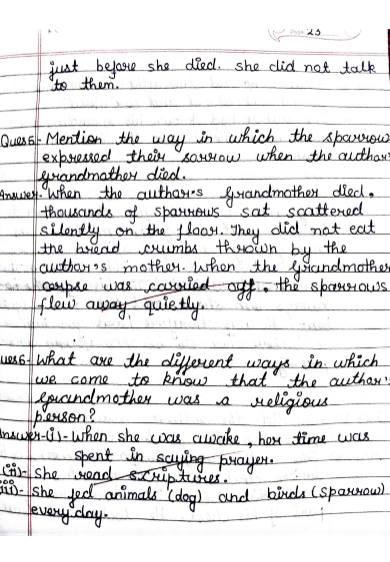 Page 23
just before she died. she did not talk
to them.
Ques5- Mention the way in which the sparrow
expressed their sorrow when the author
grandmother died.
Answer- When the author's grandmother died,
thousands of sparrows sat scattered
silently on the floor. They did not eat
the bread crumbs thrown by the
author's mother. When the grandmother
corpse was carried off, the sparrows
flew away quietly.
ues6- What are the different ways in which
we come to know that the author's
grandmother was a religious
person?
Answer-(i)- When she was awake, her time was
spent in saying prayer.
(ii)- she read scriptures.
iii)- she fed animals (dog) and birds (sparrow)
everyday.